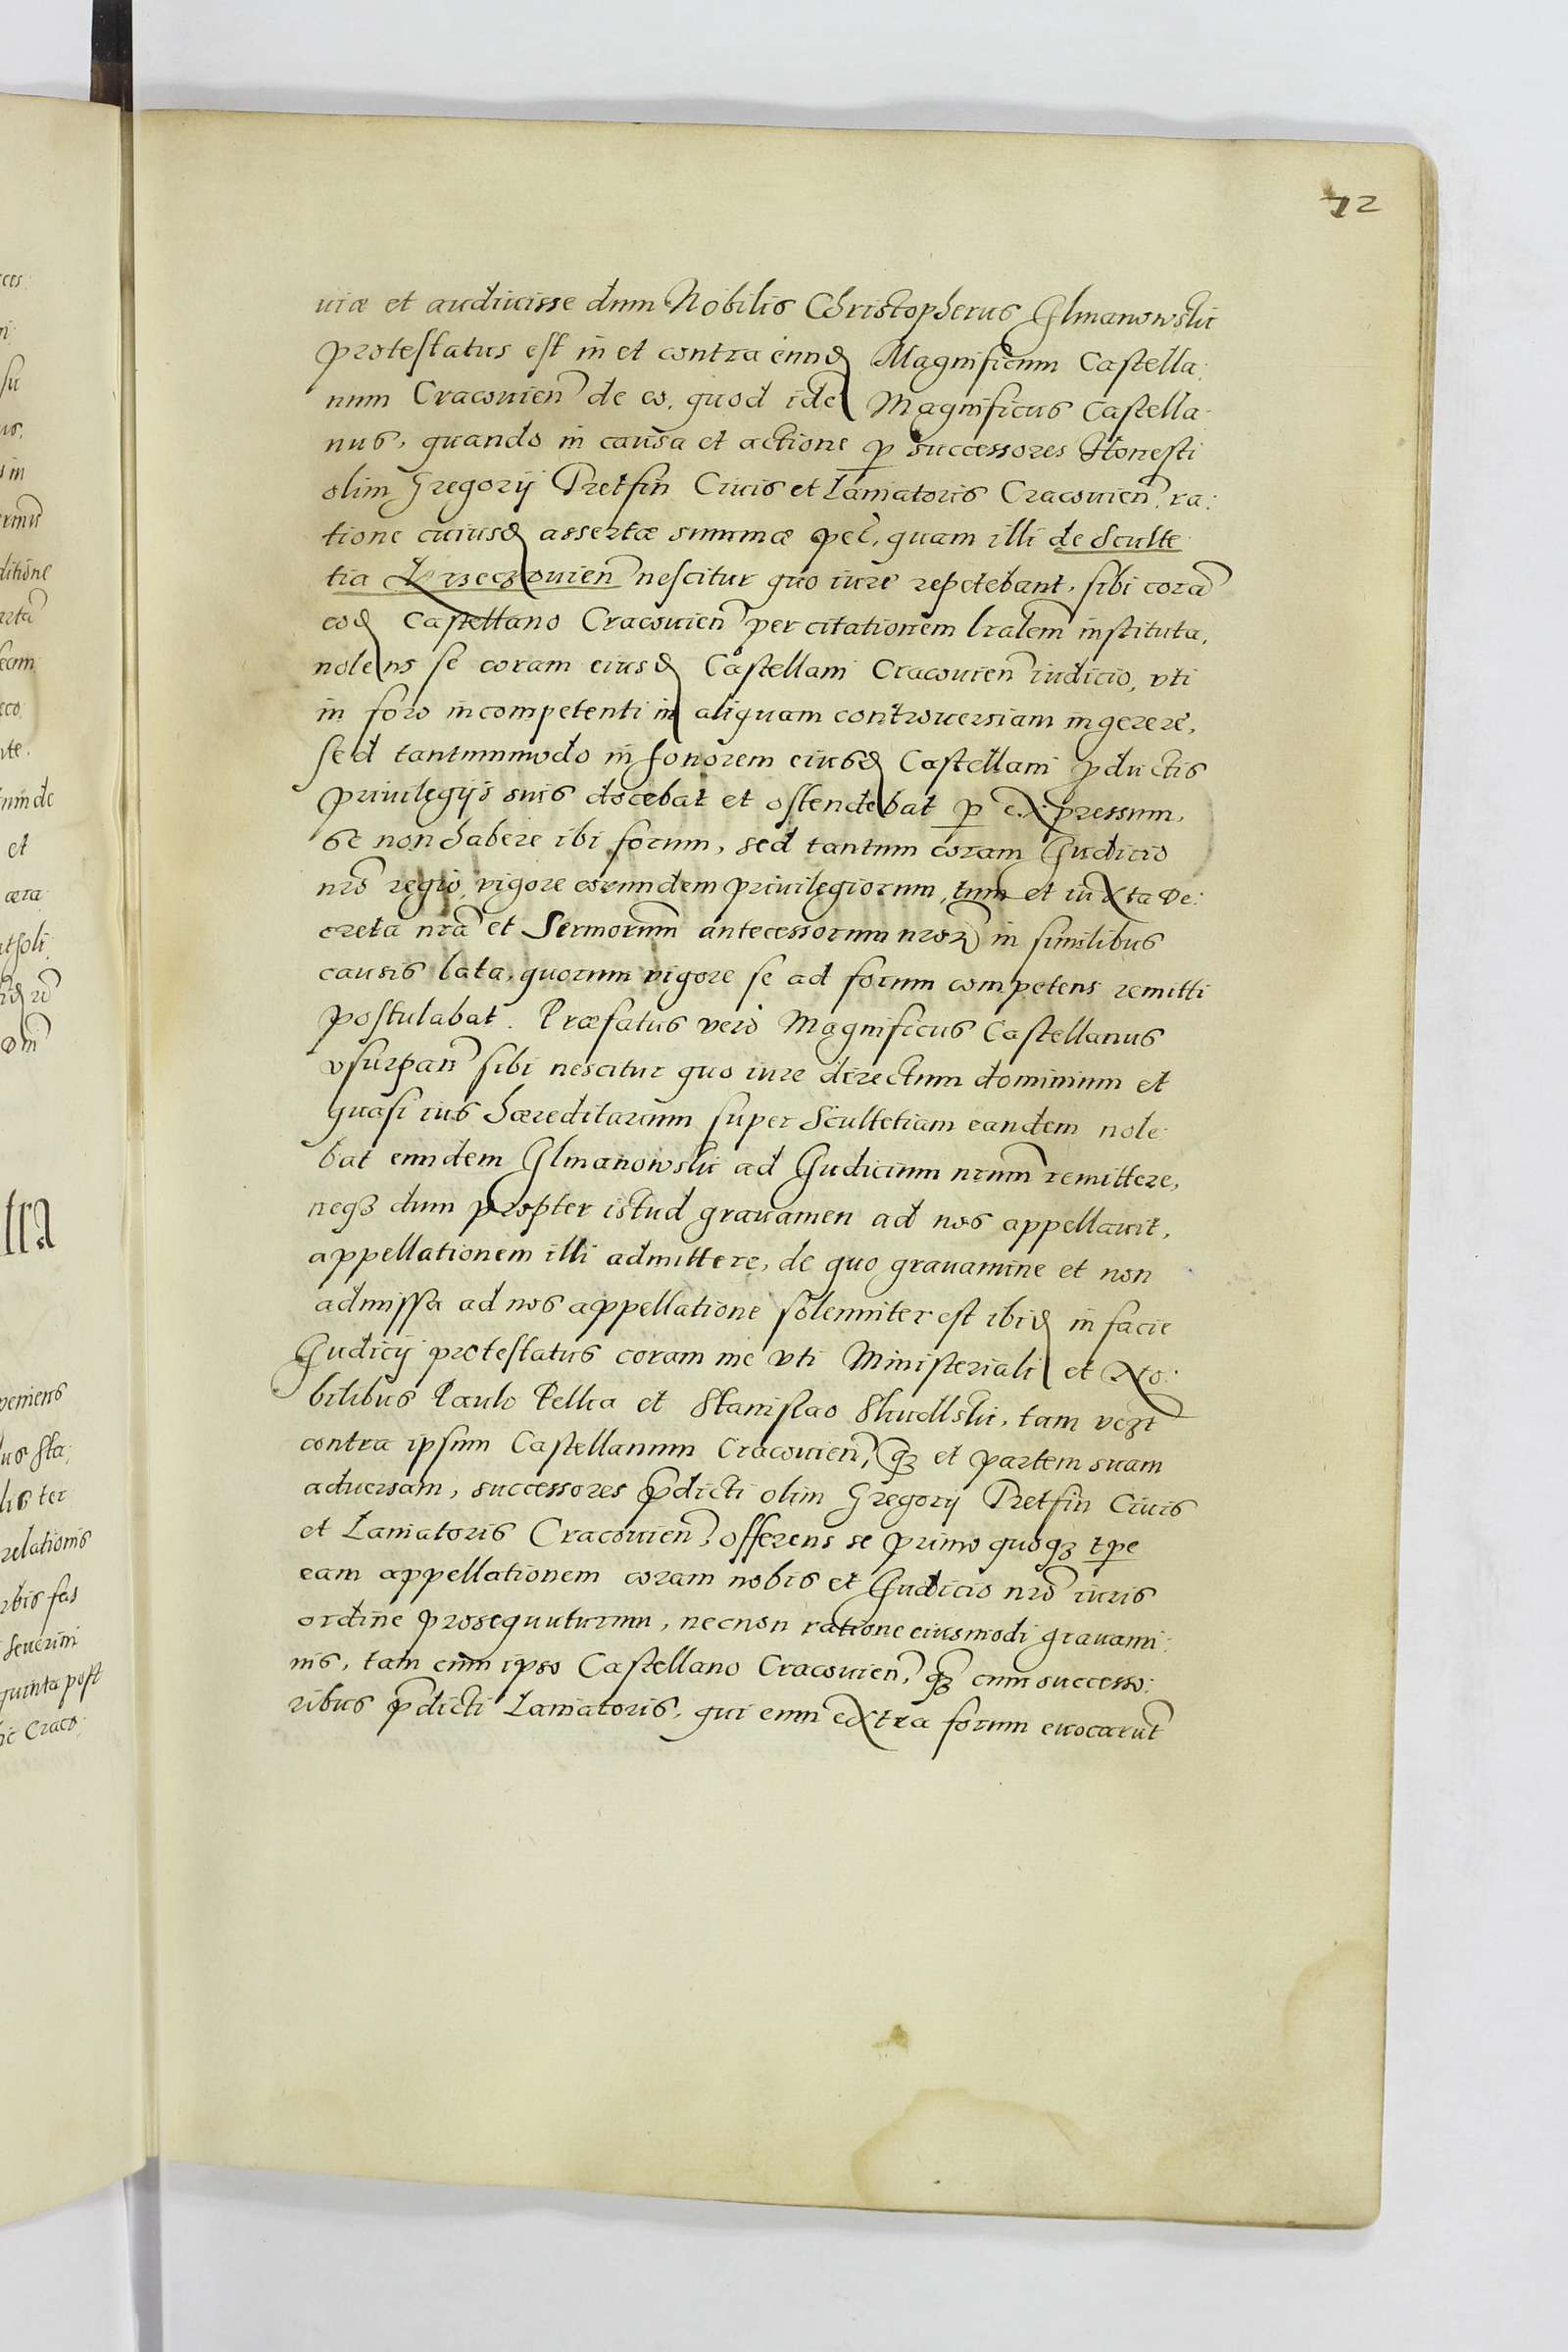 72
uiæ et audiuisse dum Nobilis Christopherus Glmanowski
protestatus est in et contra eund Magnificum Castella:
num Cracouien̄ de eo, quod idē Magnificus Castella:
nus, quando in causa et actione p successores Honesti
olim Gregorij Pretfin Ciuis et Laniatoris Cracouien̄, ra:
tione cuiusd assertæ summæ pec̄, quam illi de Sculte
tia nescitur quo iure repetebant, sibi corā
eod Castellano Cracouien̄ per citationem lralem̄ instituta,
nolens se coram eiusd Castellani Cracouien̄ iudicio, vti
in foro incompetenti in aliquam controuersiam ingerere,
sed tantummodo in honorem eiusd Castellani pductis
priuilegijs suis docebat et ostendebat p expressum,
se non habere ibi forum, sed tantum coram Iudicio
nrō regio, vigore eorundem priuilegiorum, tum et iuxta De:
creta nrā et Sermorum̄ antecessorum nrōr in similibus
causis lata, quorum vigore se ad forum competens remitti
postulabat. Præfatus verò Magnificus Castellanus
vsurpan̄ sibi nescitur quo iure directum dominium et
quasi ius hæreditarium super Scultetiam eandem nole:
bat eundem Glmanowski ad Iudicium nrum̄ remittere,
neqз dum propter istud grauamen ad nos appellauit,
appellationem illi admittere, de quo grauamine et non
admissa ad nos appellatione solenniter est ibid in facie
Iudicij protestatus coram me vti Ministeriali et No:
bilibus Paulo Pelka et Stanislao tam
contra ipsum Castellanum Cracouien̄, qз et partem suam
aduersam, successores pdicti olim Gregorij Pretfin Ciuis
et Laniatoris Cracouien̄, offerens se primo quoqз tpe
eam appellationem coram nobis et Iudicio nrō iuris
ordine prosequuturum, necnon ratione eiusmodi grauami:
nis, tam cum ipso Castellano Cracouien̄, qз cum successo:
ribus pdicti Laniatoris, qui eum extra forum euocarūt